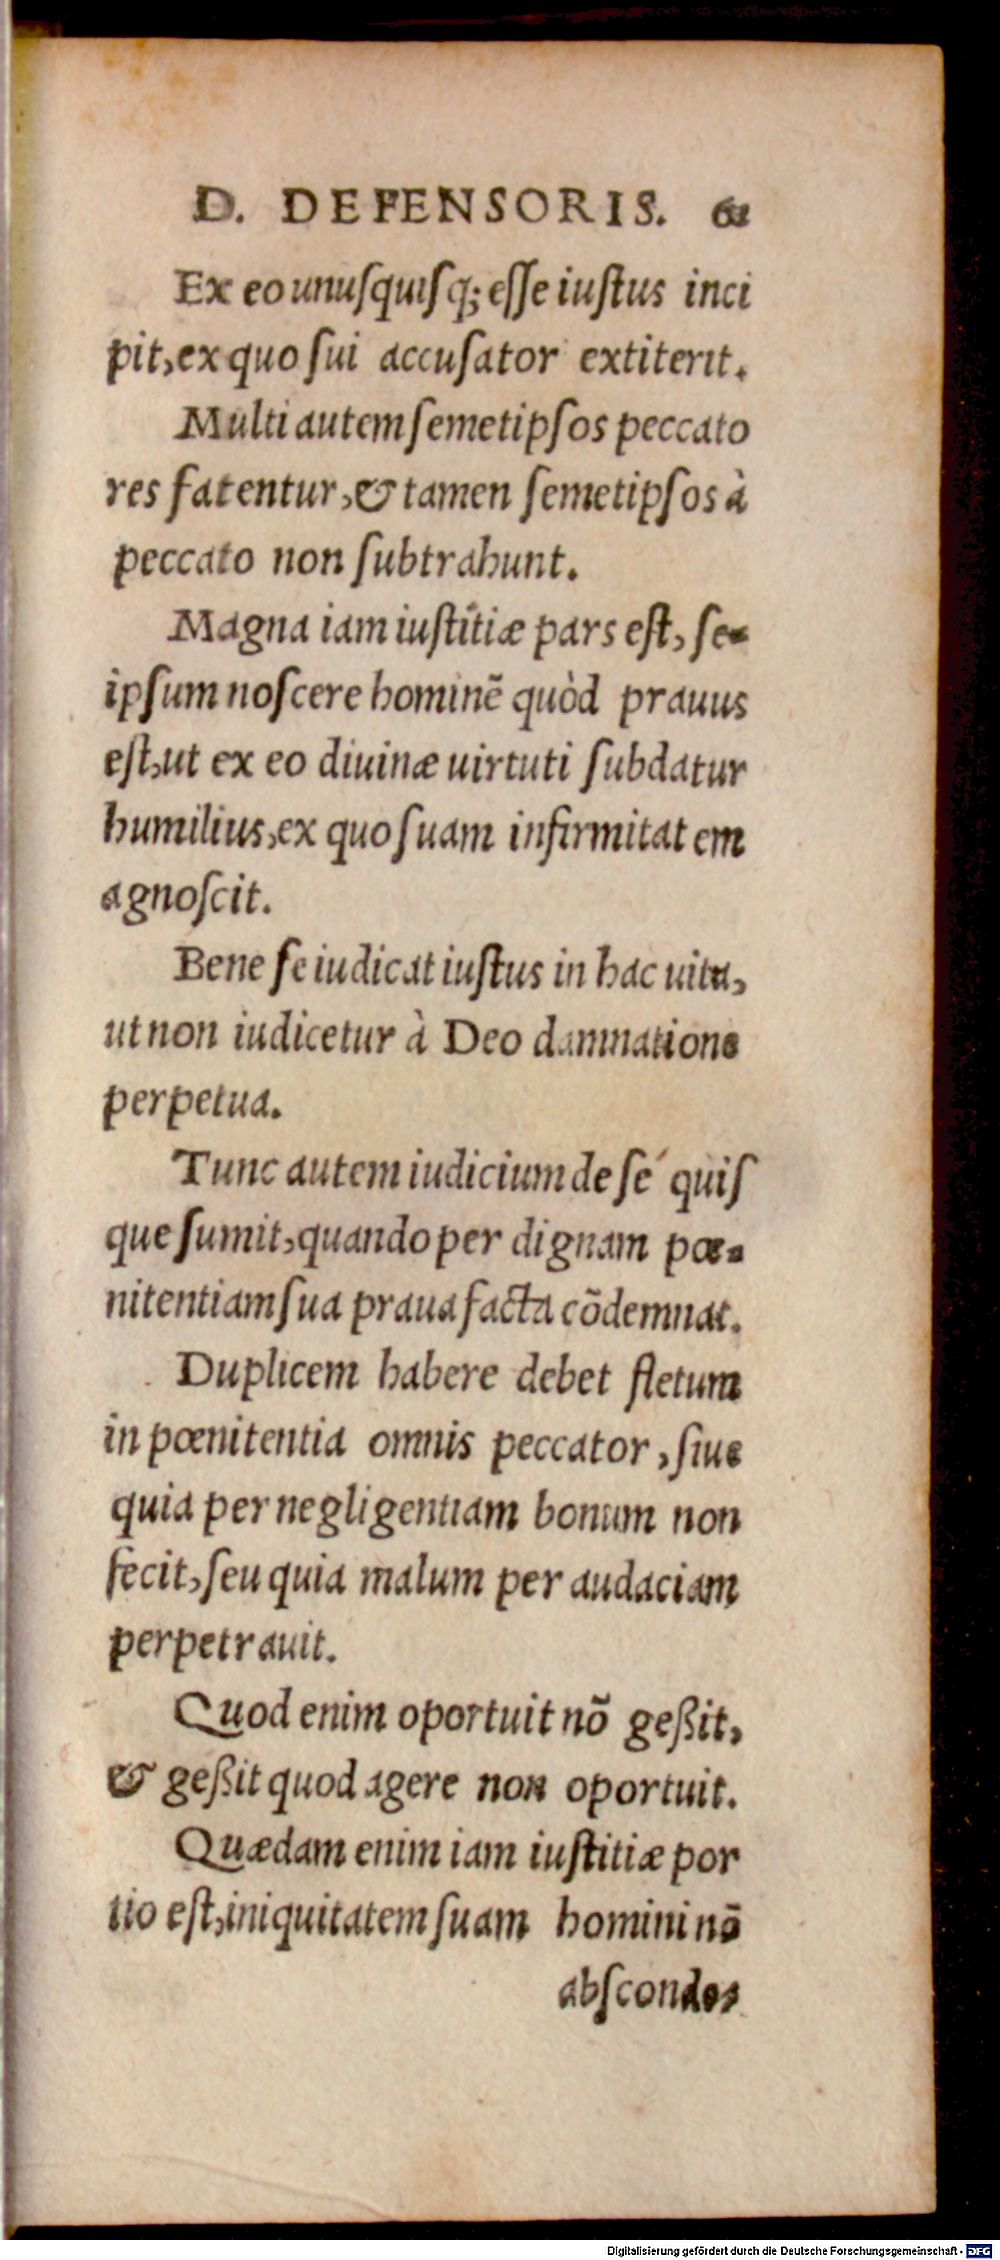 D. DEFENSORIS. 61
Ex eo unuſquiſq; eſſe iuſtus inci
pit, ex quo ſui accuſator extiterit.
Multi autem ſemetipſos peccato
res fatentur, & tamen ſemetipſos à
peccato non ſubtrahunt.
Magna iam iuſtitiæ pars eſt, ſe-
ipſum noſcere hominē quòd prauus
eſt, ut ex eo diuinæ uirtuti ſubdatur
humilius, ex quo ſuam infirmitatem
agnoſcit.
Bene ſe iudicat iuſtus in hac uita,
ut non iudicetur à Deo damnatione
perpetua.
Tunc autem iudicium de ſé quiſ
que ſumit, quando per dignam pœ-
nitentiam ſua praua facta cōdemnat.
Duplicem habere debet fletum
in pœnitentia omnis peccator, ſiue
quia per negligentiam bonum non
fecit, ſeu quia malum per audaciam
perpetrauit.
Quod enim oportuit nō geßit,
& geßit quod agere non oportuit.
Quædam enim iam iuſtitiæ por
tio eſt, iniquitatem ſuam homini nō
Digitalisierung gefördert durch die Deutsche Forschungsgemeinschaft - DFG